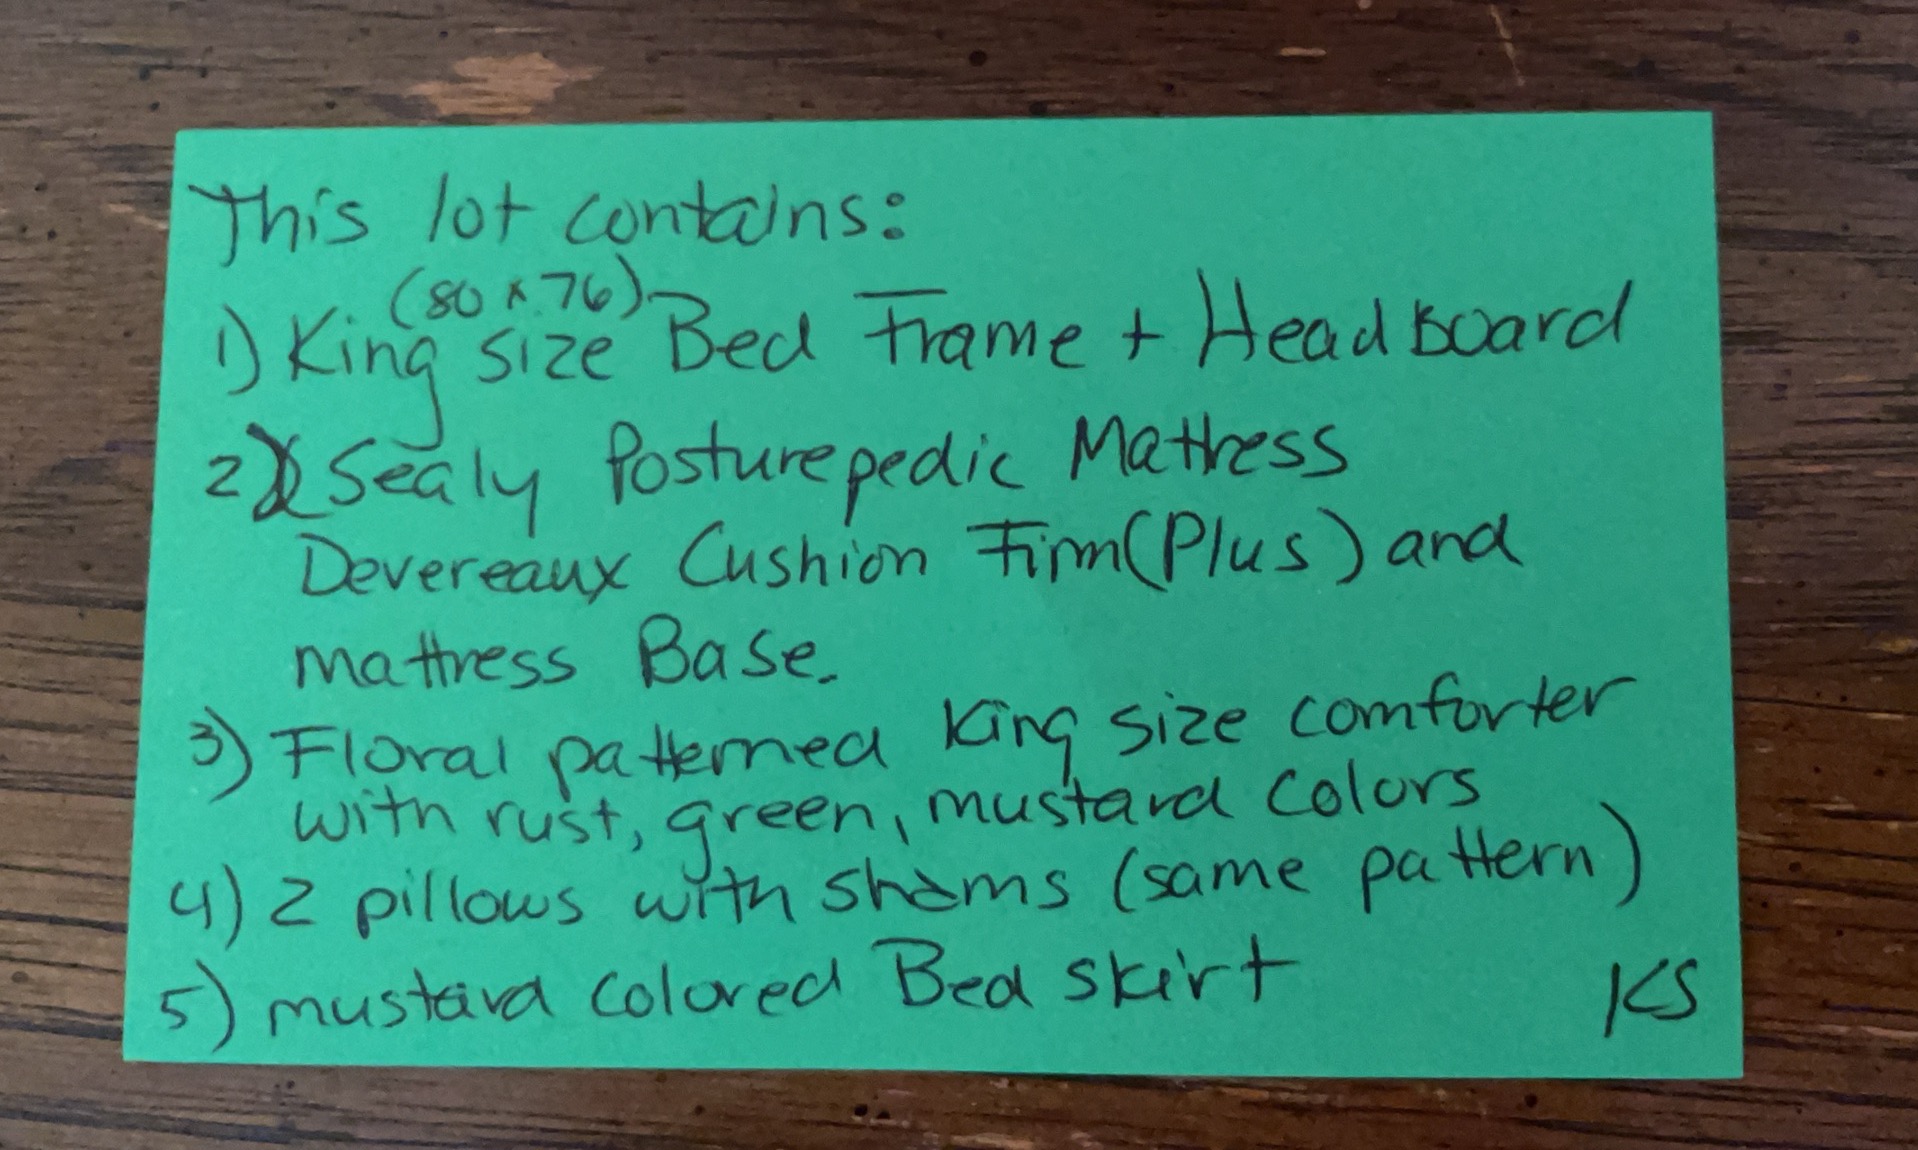 This lot contains:
(80 x 76)
1) King size Bed Frame + Headboard
2) Sealy Posturepedic Mattress
Devereaux Cushion Firm (Plus) and
mattress Base.
3) Floral patterned King size comforter
with rust, green, mustard colors
4) 2 pillows with shams (same pattern)
5) mustard colored Bed skirt
KS